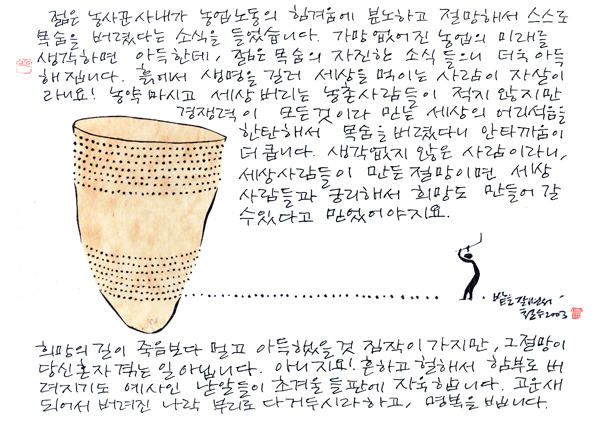 젊은 농사꾼 사내가 농업노동의 힘겨움에 분노하고 절망해서 스스로
목숨을 버렸다는 소식을 들었습니다. 가망 없어진 농업의 미래를
생각하면 아득한데, 젊은 목숨의 자진한 소식 들으니 더욱 아득
해집니다. 흙에서 생명을 길러 세상을 먹이는 사람이 자살이
라니요! 농약 마시고 세상 버리는 농촌사람들이 적지 않지만
경쟁력이 모든것이라 믿는 세상의 어리석음을
한탄해서 목숨을 버렸다니 안타까움이
더 큽니다. 생각없지 않은 사람이라니,
세상사람들이 만든 절망이면 세상
사람들과 궁리해서 희망도 만들어 갈
수 있다고 믿었어야지요.
밭을 갈면서
철수 2003
희망의 길이 죽음보다 멀고 아득했을것 짐작이 가지만, 그 절망이
당신 혼자 겪는 일 아닙니다. 아니지요! 흔하고 헐해서 함부로 버
려지기도 예사인 낱알들이 초겨울 들판에 자욱합니다. 고운새
되어서 버려진 나락 부리로 다 거두시라하고, 명복을 빕니다.